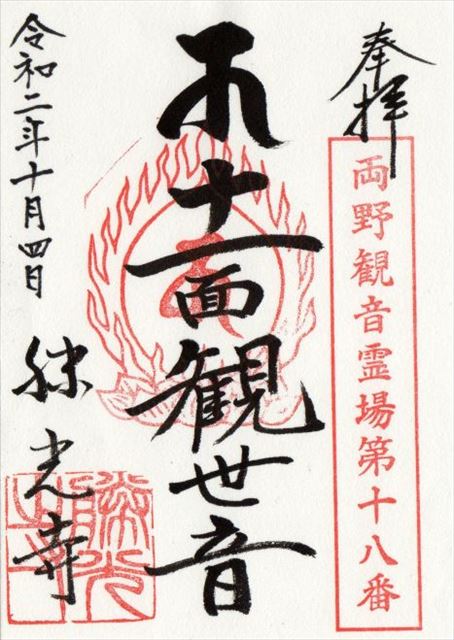 奉拝
両野観音霊場第十八番
十一面観世音
令和二年十月四日
勝光寺